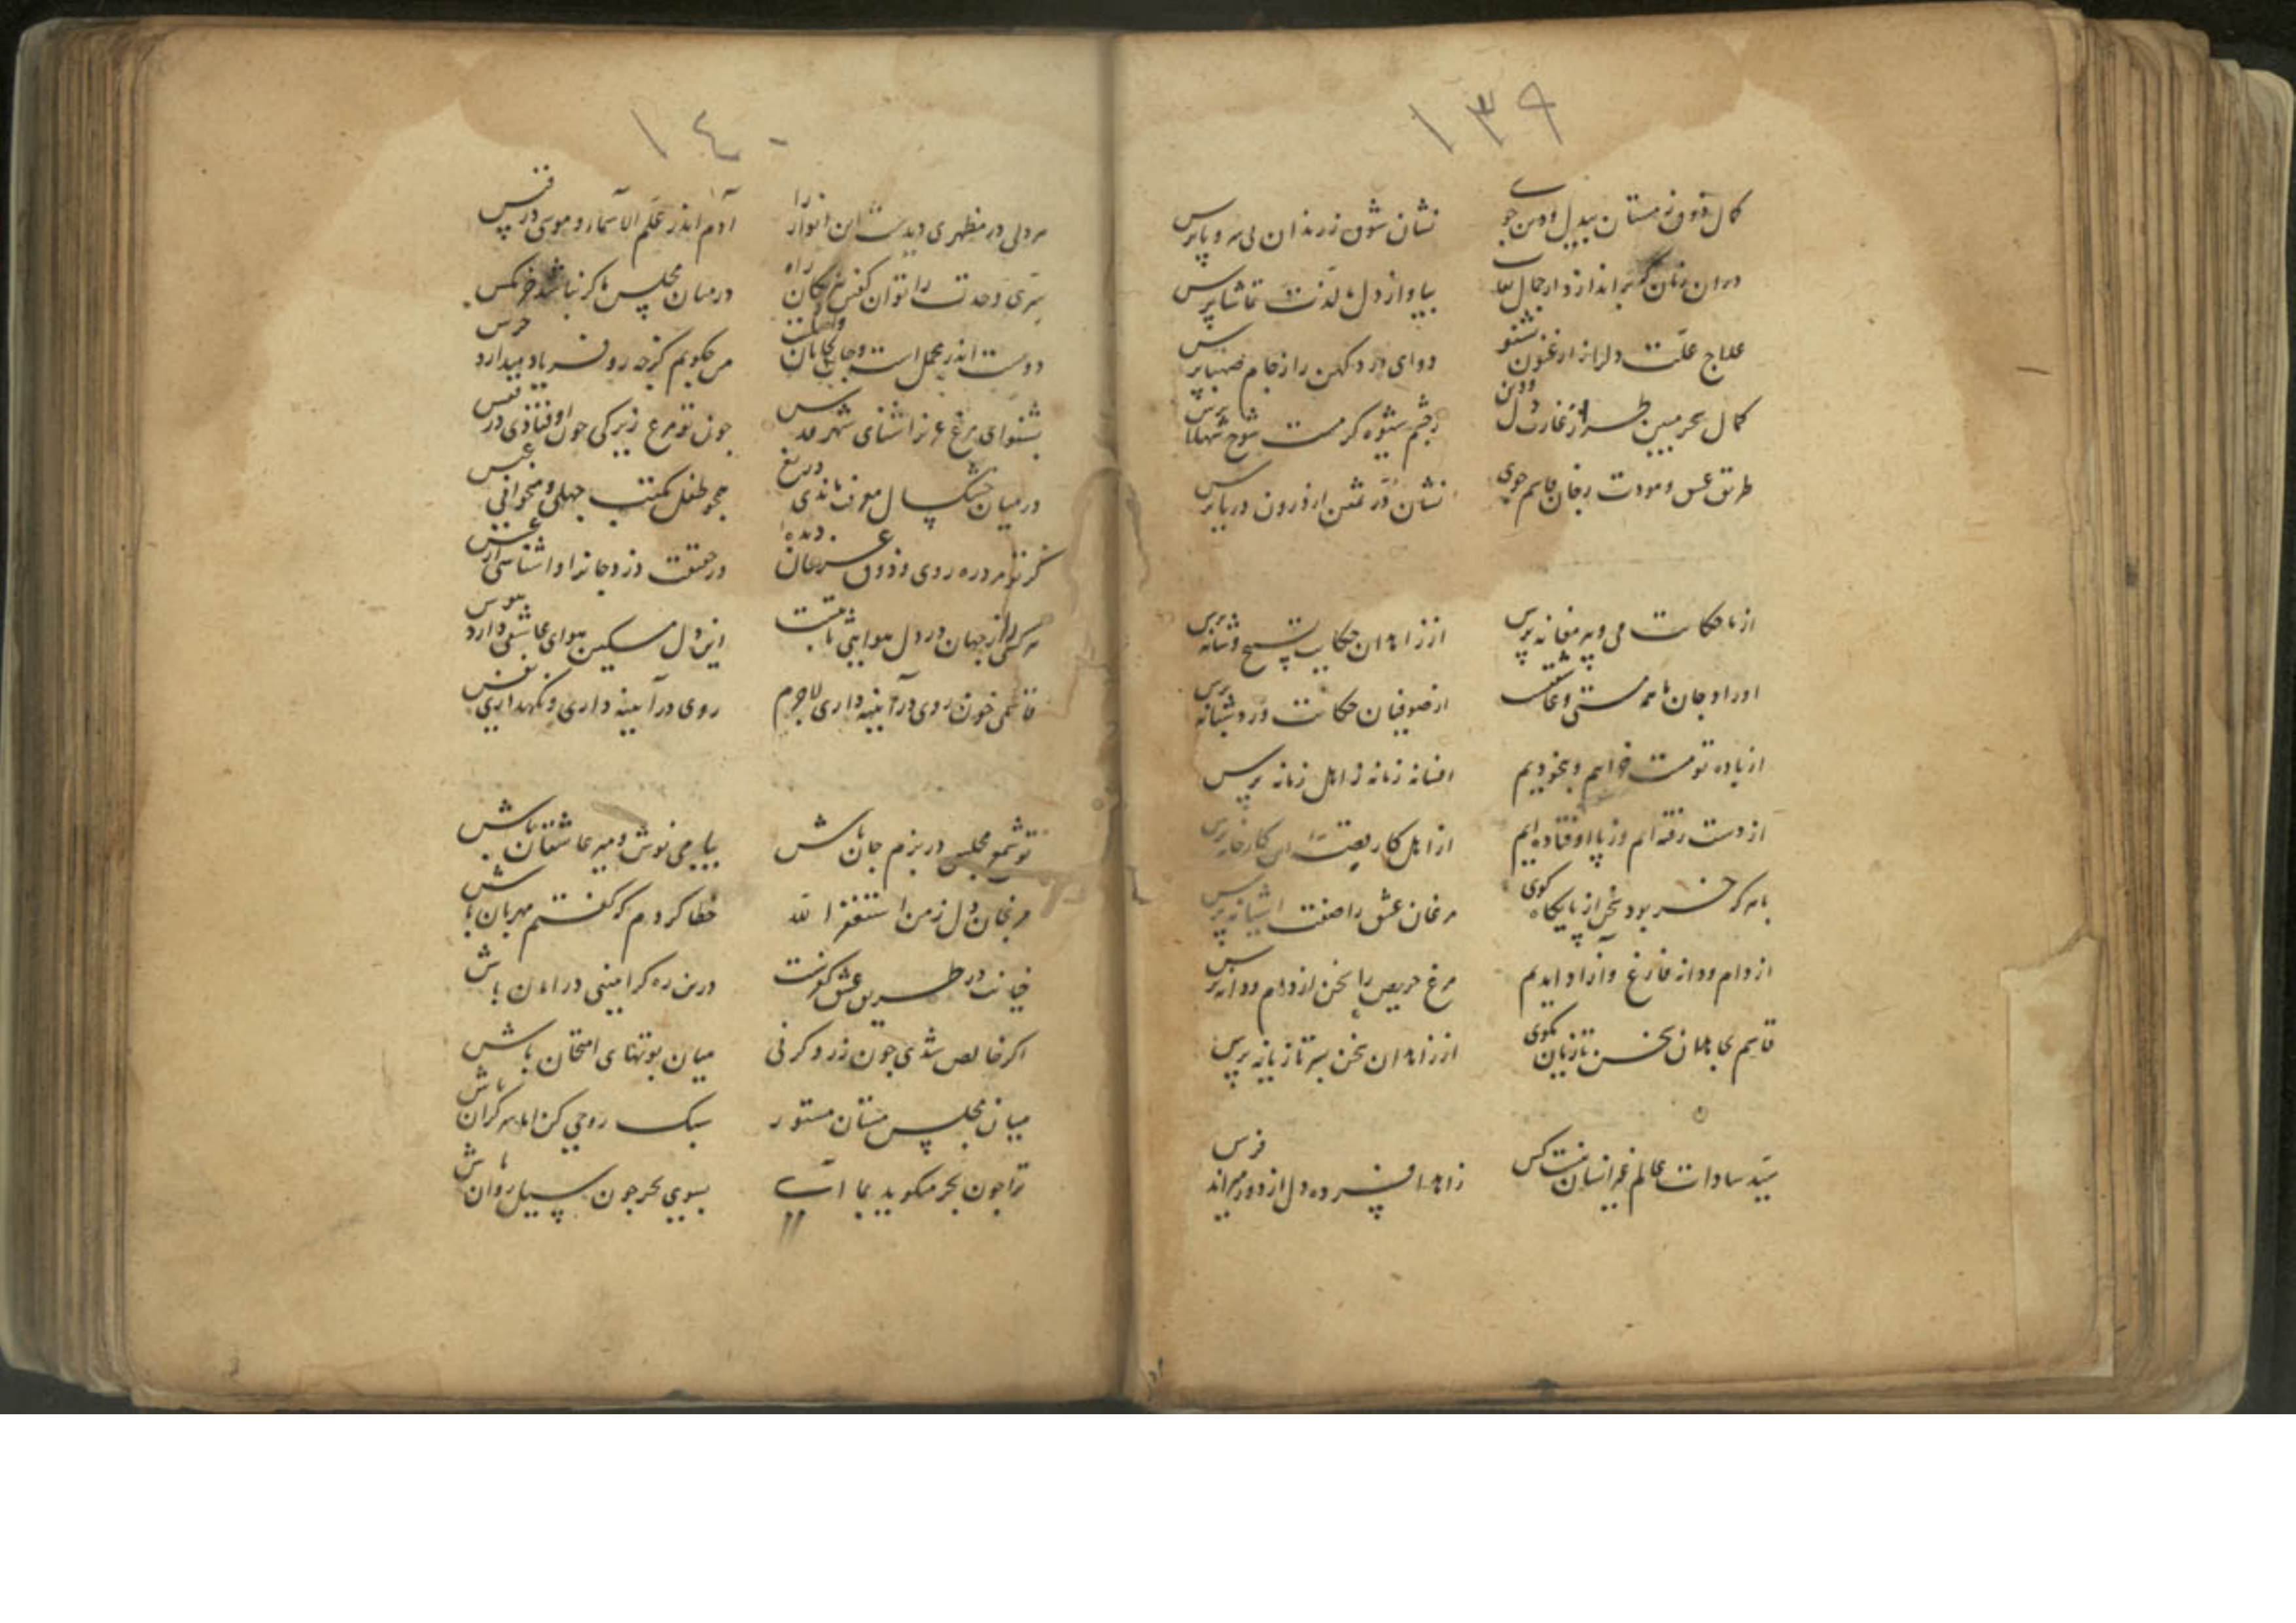 ١٣٩
کمال ذوق ز مستان بیدل و دین جوی
نشان شوق ز رندان بی سر و پا پرس
دران زمان که براندازد از جمال نقاب
بیا و از دل ما لذت تماشا پرس
علاج علت دلرا ز ارغنون بشنو
دوای درد کهن را ز جام صهبا پرس
کمال سحر مبین غارت دل و دین
ز چشم شیوه کر مست شوخ شهلا پرس
طریق عشق و مودت ز جان قاسم جوی
نشان در ثمین از درون دریا پرس
از ما حکایت می و پیر مغانه پرس
از زاهدان حکایت تسبیح و شانه پرس
اوراد جان ما همه مستی و عاشقیست
از صوفیان حکایت ورد شبانه پرس
از باده تو مست و خرابیم و بیخودیم
افسانه زمانه ز اهل زمانه پرس
از دست رفته ایم و ز پا اوفتاده ایم
از اهل کار این کارخانه پرس
با هر که خسر بود سخن از پایکاه کوی
مرغان عشق را صفت اشیانه پرس
از دام و دانه فارغ و آزاد آمدیم
مرغ حریص را سخن از دام و دانه پرس
قاسم بجاهلان سخن تازیان مکوی
از زاهدان سخن بسر تازیانه پرس
سید سادات عالم غیر انسان نیست کس
زاهد افسرده دل از دور میراند فرس
١٤٠
هر دلی در مظهری دیدست این انوار را
آدم اندر علم الاسما و موسی در قبس
سری وحدت را توان کفتن
در میان مجلس ما کر نباشد خرمکس
دوست اندر محمل است و جان
من چکویم کز چه رو فریاد میدارد جرس
بشنو ای مرغ عزیز اشنای شهر قدس
چون تو مرغ زیرکی چون اوفتادی در قفس
در میان خشک سال معرفت ماندی دریغ
همچو طفل مکتب جهلی و میخوانی عبس
کر تو مرد ره روی و ذوق عرفان دیده
در حقیقت دزد جانرا وا شناسی از عسس
هر کسی را از جهان در دل هوایی ثابتست
این دل مسکین هوای عاشقی دارد هوس
قاسمی چون روی در آیینه داری لاجرم
روی در آیینه داری و نکهداری نفس
تو شمع مجلسی در بزم جان باش
بیا می نوش و میر عاشقان باش
مرنجان دل ز من استغفر الله
خطا کردم که کفتم مهربان باش
خیانت در طریق عشق کفرست
درین ره کر امینی در امان باش
اکر خالص شدی چون زر و کر نی
میان بوتهای امتحان باش
میان مجلس مستان مستور
سبک روحی کن اما سر کران باش
ترا چون بحر میکوید بما آی
بسوی بحر چون سیل روان باش